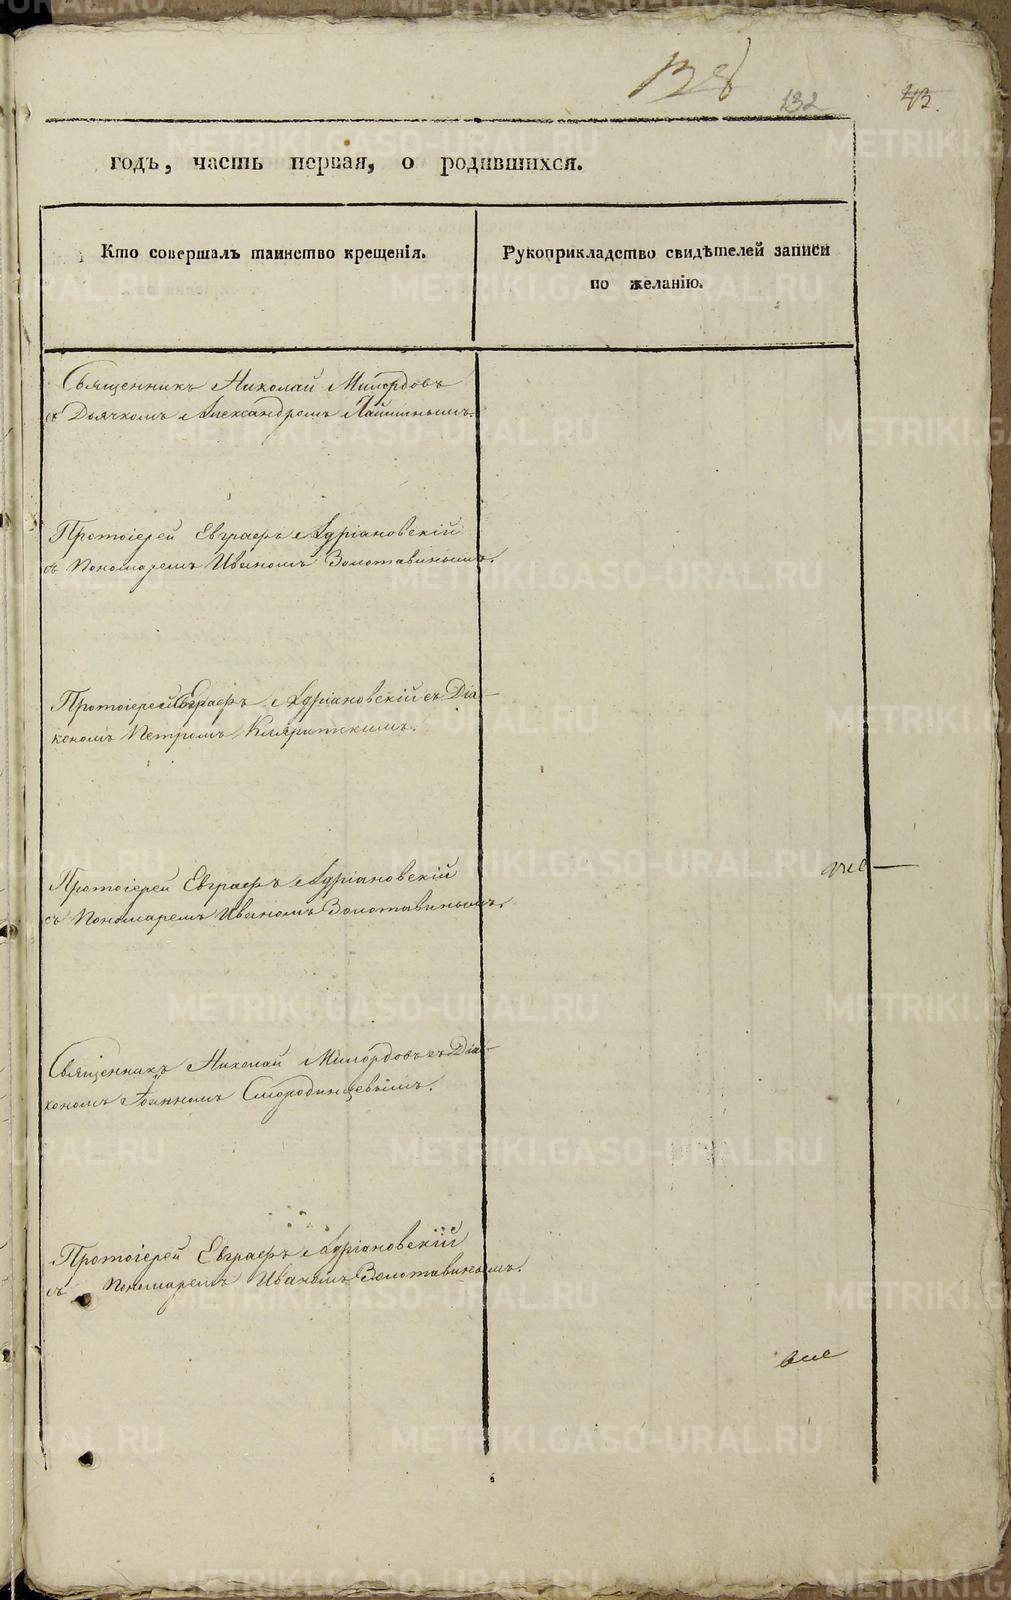 132
43.
годъ, часть первая, о родившихся.
Кто совершалъ таинство крещенія.
Рукоприкладство свидѣтелей записи
по желанію.
Священникъ Николай Милордовъ
съ Дьячкомъ Александромъ
Протоіерей Евграфъ Адріановскій
съ Пономаремъ Иваномъ Золотавинымъ.
Протоіерей Евграфъ Адріановскій съ Діа-
кономъ Петромъ
Протоіерей Евграфъ Адріановскій
съ Пономаремъ Иваномъ Золотавинымъ.
Священникъ Николай Милордовъ съ Діа-
кономъ Іоанномъ Смородинцевымъ.
Протоіерей Евграфъ Адріановскій
съ Пономаремъ Иваномъ Золотавинымъ.
METRIKI.GASO-URAL.RU